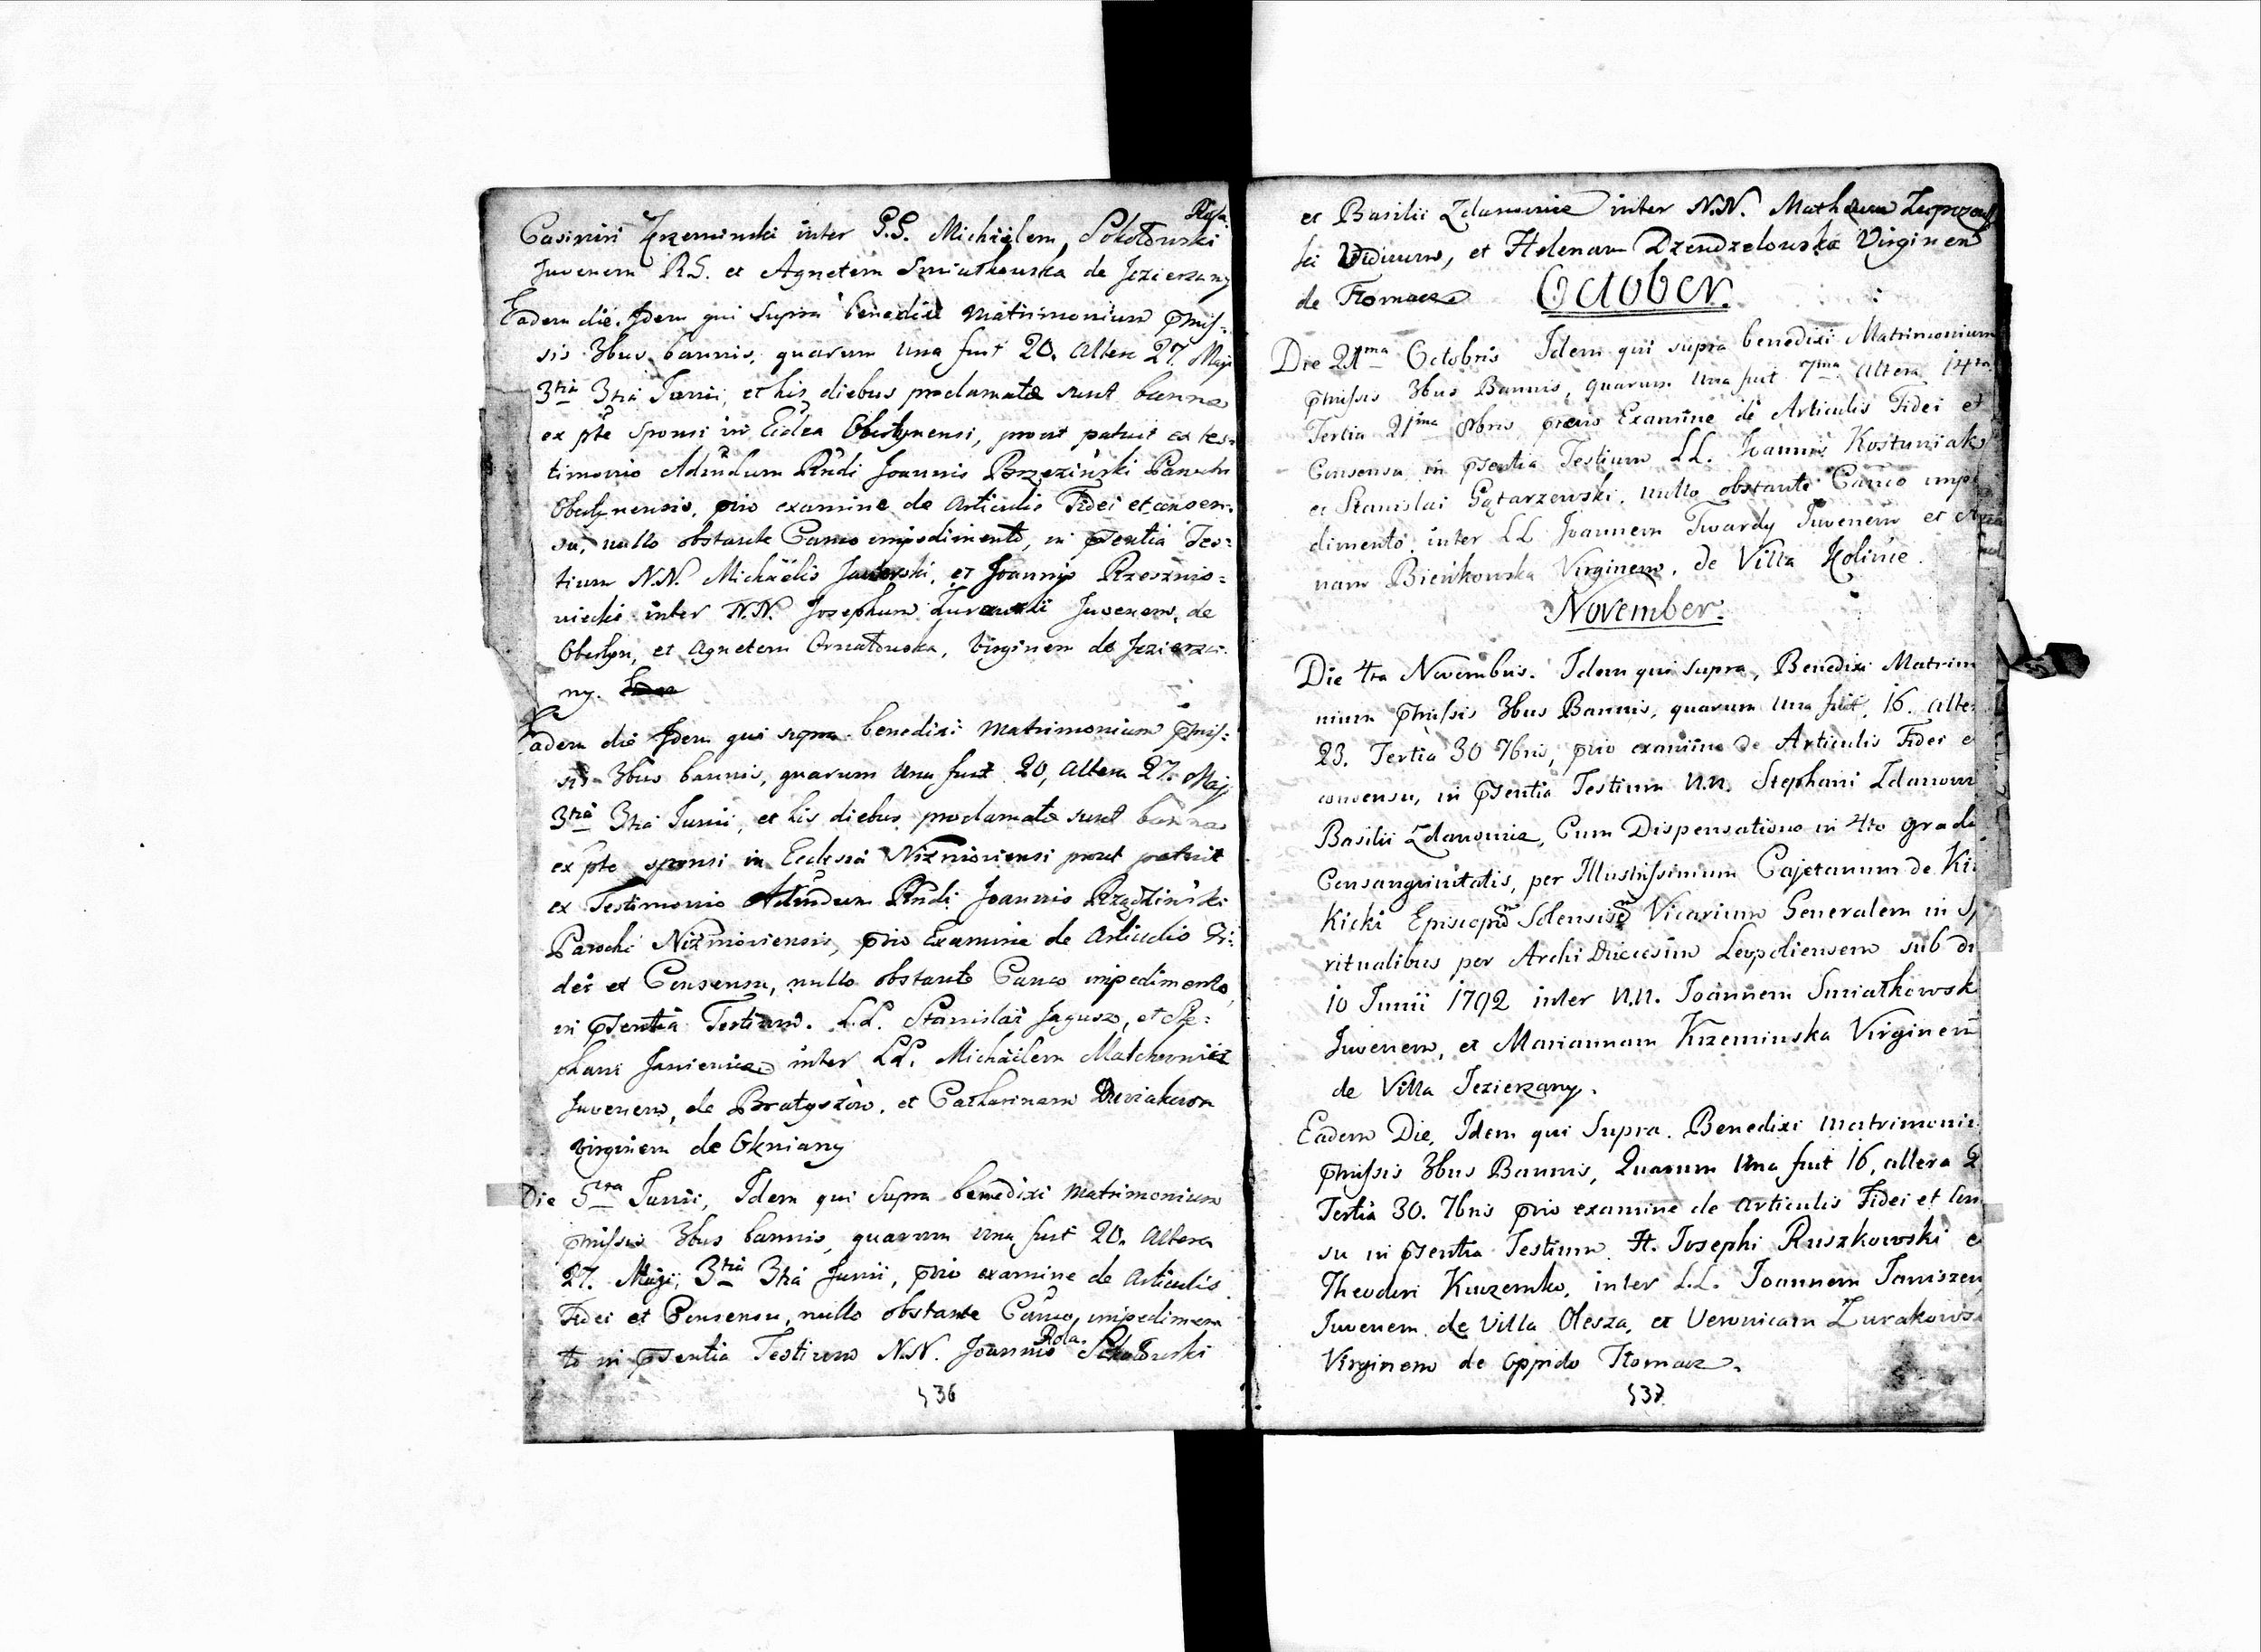 Rola.
Casimiri Krzeminski inter G.G. Michaëlem Sokołowski
Juvenem R.S. et Agnetem Smiałkowska de Jezierzany
Eadem die. Idem qui supra benedixi Matrimonium pmis-
sis 3bus bannis, quarum una fuit 20. altera 27. Maji
3tia 3tia Junii, et his diebus proclamata sunt banna
ex pte Sponsi in Ecclea Obertynensi, prout patuit ex tes-
timonio Adndum Rndi Joannis Brzeziński Parochi
Obertynensis, pvio examine de Articulis Fidei et consen-
su, nullo obstante Canco impedimento, in psentia Tes-
tium N.N. Michaëlis Jaworski, et Joannis Rzesznio-
wiecki inter N.N. Josephum Żurawski Juvenem, de
Obertyn, et Agnetem Ornatowska, Virginem de Jezierza-
ny.
Eadem die Idem qui supra benedixi Matrimonium pmis-
sis 3bus bannis, quarum una fuit 20, altera 27. Maji
3tia 3tia Junii, et his diebus proclamata sunt banna
ex pte sponsi in Ecclesia Nizmioviensi prout patuit
ex Testimonio Adndum Rndi Joannis
Parochi Nizmioviensis, pvio Examine de Articulis Fi-
dei et Consensu, nullo obstante Canco impedimento,
in psentia Testium. L.L. Stanislai Jagusz, et Ste-
phani inter LL. Michaëlem
Juvenem, de Bratyszów, et Catharinam
Virginem de Okniany
Die 5ta Junii, Idem qui supra benedixi Matrimonium
pmissis 3bus bannis, quarum una fuit 20. altera
27. Maji, 3tia 3tia Junii, pvio examine de Articulis
Fidei et Consensu, nullo obstante Canco, impedimen
Rola.
to in psentia Testium N.N. Joannis Sokołowski
536
et Basilii Zdanowicz inter N.N. Matheum
ski Viduum, et Helenam Dzendzelowska Virginem
de Tłomacz
October.
Die 21ma Octobris Idem qui supra benedixi Matrimonium
pmissis 3bus Bannis, quarum una fuit 7ma altera 14ta
Tertia 21ma 8bris pvio Examine de Articulis Fidei et
Consensu in psentia Testium LL. Joannis Kostuniak
et Stanislai Gątarzewski, nullo obstante Canco impe
dimento, inter LL Joannem Twardy Juvenem et An
nam Bieńkowska Virginem, de Villa Holince.
November.
Die 4ta Novembris. Idem qui supra, Benedixi Matrim
nium pmissis 3bus Bannis, quarum una fuit 16. alte
23. Tertia 30 7bris, pvio examine de Articulis Fidei e
consensu, in psentia Testium N.N. Stephani Zdanowi
Basilii Zdanowicz, Cum Dispensatione in 4to gradu
Consanguinitatis, per Illustrissimum Cajetanum de Ki
Kicki Episcopum Vicarium Generalem in Sp
ritualibus per Archi Diecesim Leopoliensem sub di
10 Junii 1792 inter N.N. Joannem Smiałkowsk
Juvenem, et Mariannam Krzeminska Virginem
de Villa Jezierzany.
Eadem Die, Idem qui Supra. Benedixi matrimoniu
pmissis 3bus Bannis, Quarum Una fuit 16, altera 2
Tertia 30. 7bris pvio examine de articulis Fidei et Con
su in psentia Testium. H. Josephi Ruszkowski e
Theodori Kuzemko, inter L.L. Joannem Janiszew
Juvenem de Villa Olesza, et Veronicam Zurakows
Virginem de Oppido Tłomacz.
537